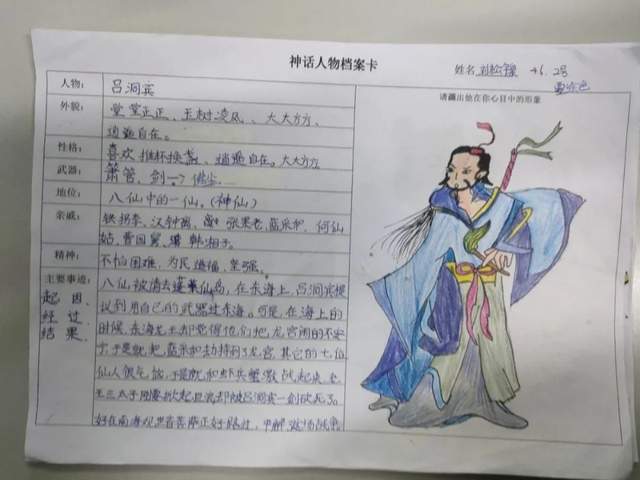 神话人物档案卡
姓名 +6. 28
人物: 吕洞宾
请画出他在你心目中的形象
外貌: 堂堂正正、玉树凌风、大大方方、
逍遥自在。
性格: 喜欢推杯换盏、逍遥自在。大大方方
武器: 箫管、剑
地位: 八仙中的一仙。(神仙)
亲戚: 铁拐李、汉钟离、张果老、蓝采和、何仙
姑、曹国舅、韩湘子。
精神: 不怕困难,为民造福,坚强。
主要事迹:
起因
经过
结果
八仙被请去蓬莱仙岛,在东海上,吕洞宾提
议利用自己的武器过东海。可是,在海上的
时候,东海龙王却觉得他们把龙宫闹的不安
宁于是就把蓝采和劫持到了龙宫,其它的七仙
仙人很气愤,于是就和虾兵蟹激战起来,
王三太子刚要掀起巨浪却被吕洞宾一剑砍死了。
好在南海观世音菩萨正好路过,这场战争